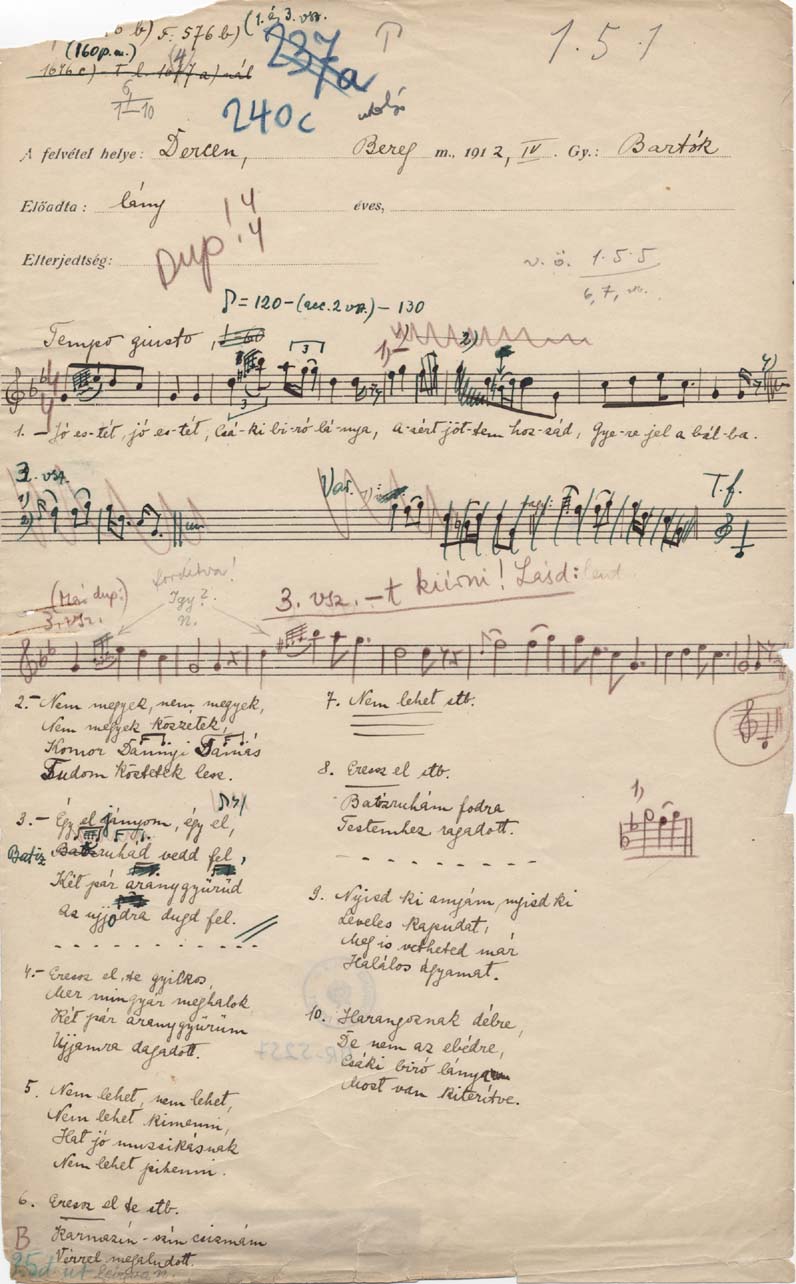 b) F. 576 b) (1. é 3. vsz.
(160 p.m.)
237a
T
1.5.1
6
1–10
240c
utolja
A felvétel helye: Dercen, Bereg m., 1912, IV. Gy.: Bartók
Előadta: lány éves,
Dup! 4
Elterjedtség:
v. ö. 1.5.5
6, 7, vsz.
♪ = 120 – (acc. 2 vsz.) – 130
Tempo giusto,
1. – Jó es-tét, jó es-tét, Csá-ki bi-ró lá-nya, A-zért jöt-tem hoz-zád, Gye-re jel a bál-ba.
3. vsz.
Var.
T. f.
(Már dup:)
3. vsz.
fordítva!
Igy?
n.
3. vsz. –t kiírni! Lásd: lent
2. – Nem megyek, nem megyek,
Nem megyek köszetek,
Komor Dannyi Tamás
Tudom köztetek lesz.
3. – Égy el jányom, égy el,
Batiz ruhád vedd fel,
Két pár aranygyűrűd
Az ujjodra dugd fel.
4. – Eressz el, te gyilkos,
Mer mingyár meghalok
Két pár aranygyűrűm
Ujjamra dagadott.
5. Nem lehet, nem lehet,
Nem lehet kimenni,
Hat jó muzsikásnak
Nem lehet pihenni.
6. Eressz el te stb.
Karmazsin-szin csizmám
Vérrel megaludott.
B
7. Nem lehet stb.
8. Eressz el stb.
Batizruhám fodra
Testemhez ragadott.
1,
9. Nyisd ki anyám, nyisd ki
Leveles kapudat,
Meg is vetheted már
Halálos ágyamat.
10. Harangoznak délre,
De nem az ebédre,
Csáki biró lánya
Most van kiterítve.